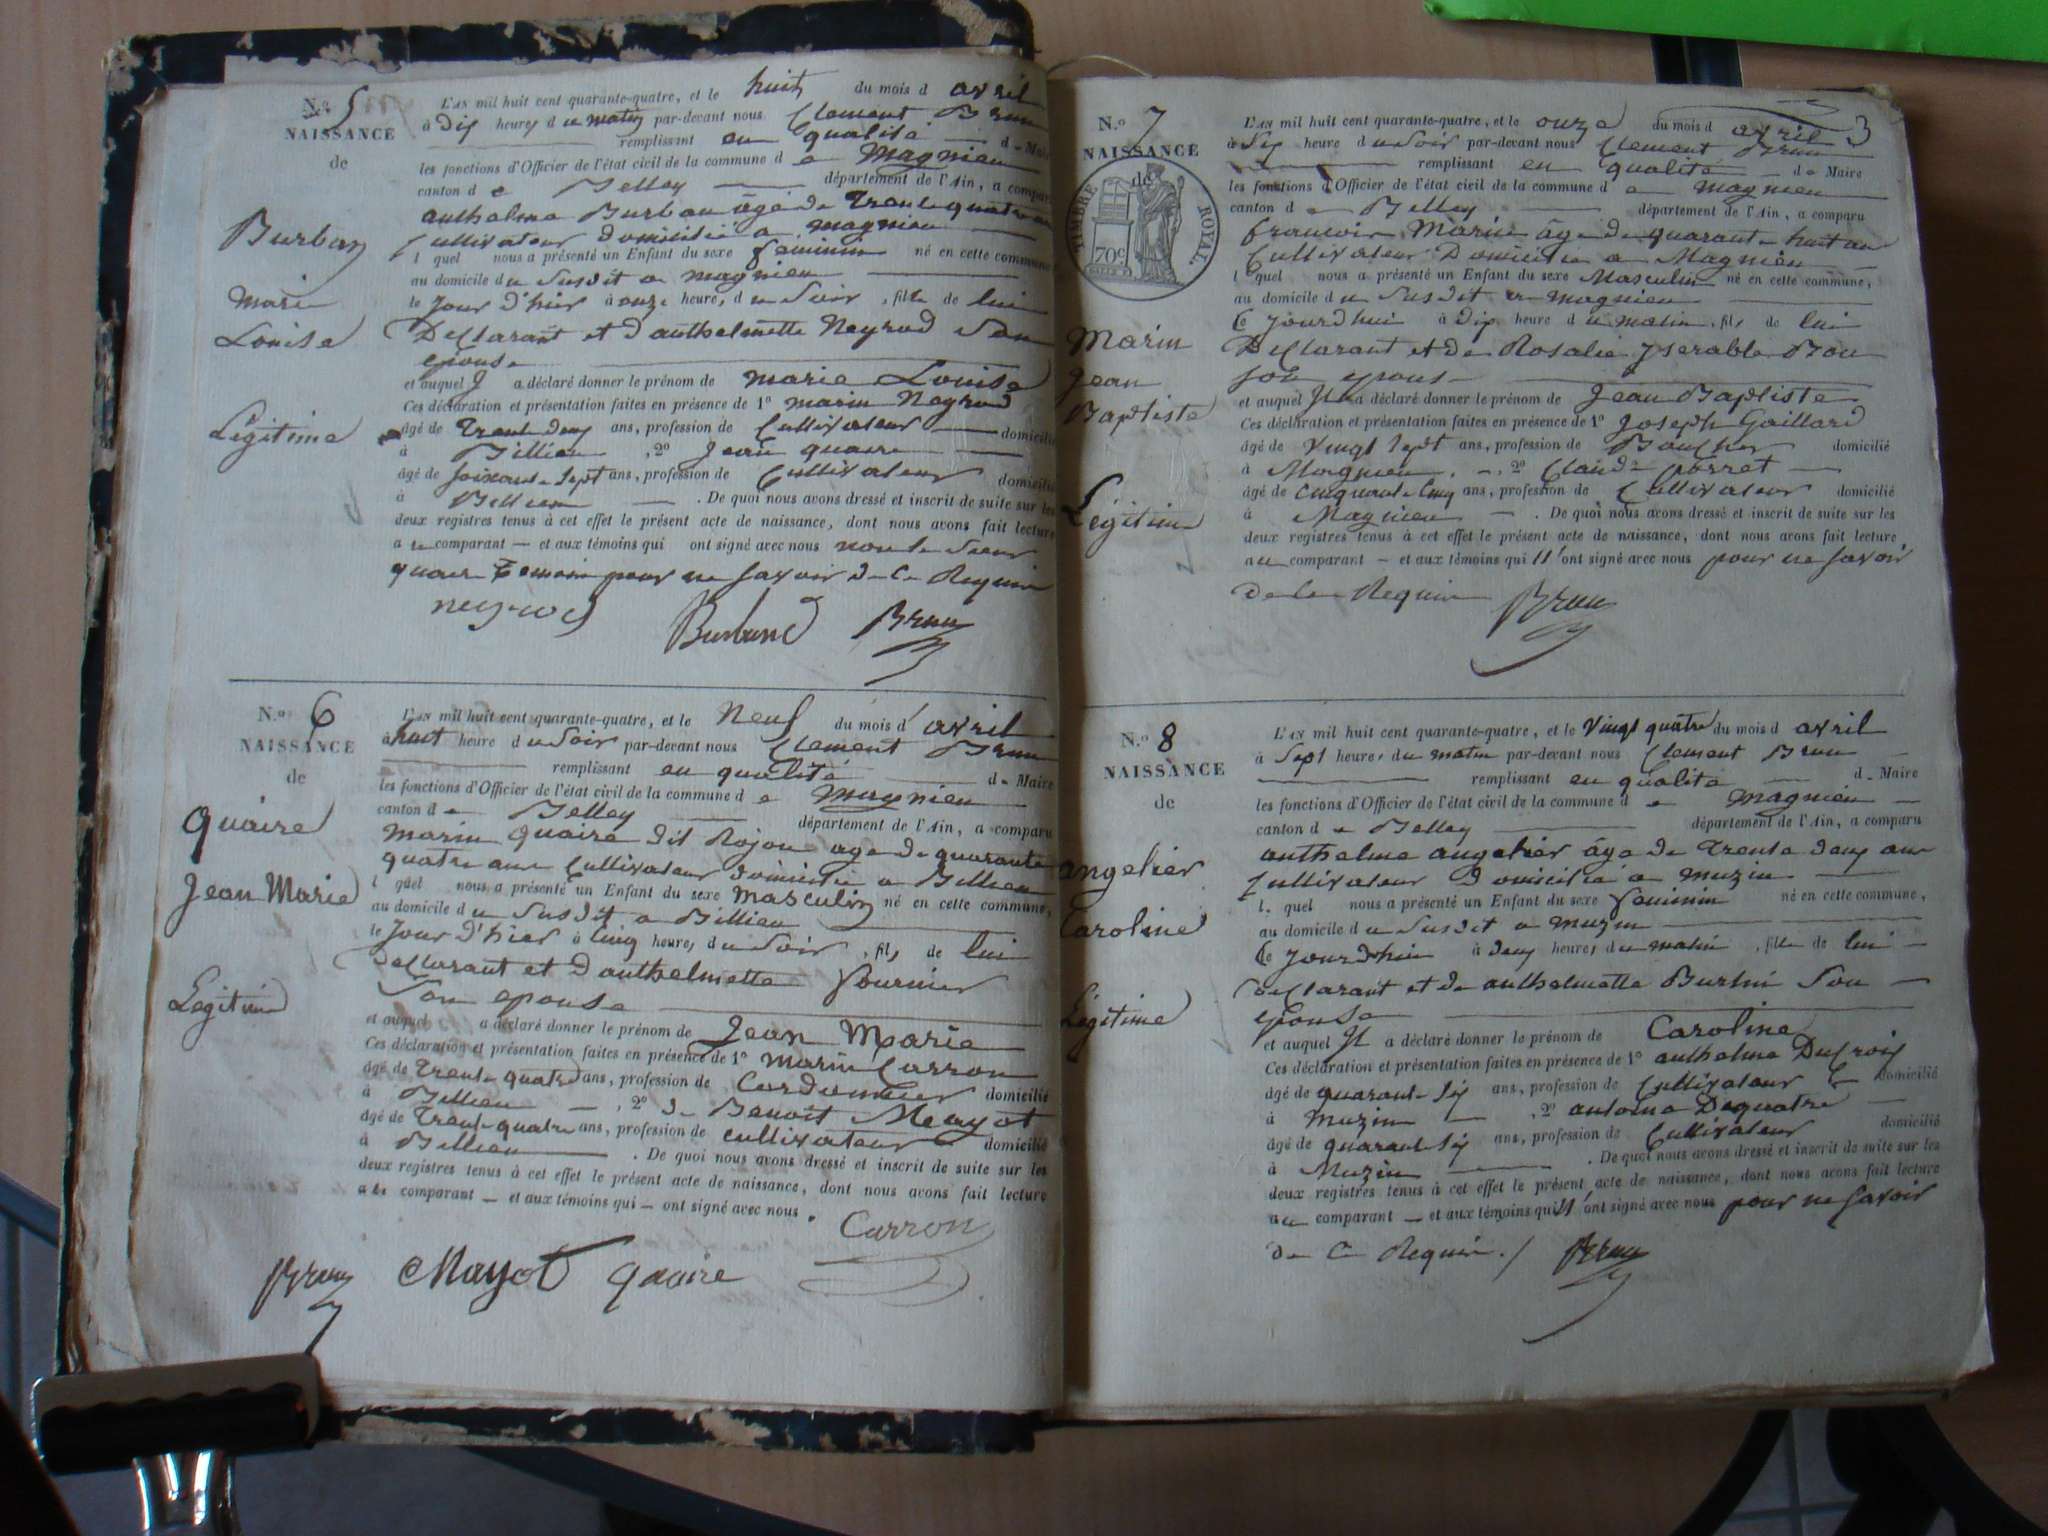 N.o 5
NAISSANCE
de
Burban
Marie
Louise
Légitime
L'AN mil huit cent quarante-quatre, et le huit du mois d avril
à Dix heures d u matin par-devant nous Clement Brun
remplissant en qualité de Maire
les fonctions d'Officier de l'état civil de la commune d e Magnieu
canton d e Belley département de l'Ain, a comparu
anthelme Burban âgé de Trente quatre ans
Cultivateur domicilié a magnieu
l quel nous a présenté un Enfant du sexe feminin né en cette commune
au domicile d u susdit a magnieu
le jour d'hier à onze heures d u soir, fille de lui
Déclarant et d'anthelmette Neyrod son
épouse
et auquel Il a déclaré donner le prénom de marie Louise
Ces déclaration et présentation faites en présence de 1o marin Neyrod
âgé de Trente deux ans, profession de Cultivateur domicilié
à Billieu, 2o Jean quaire
âgé de soixante sept ans, profession de Cultivateur domicilié
à Billieu. De quoi nous avons dressé et inscrit de suite sur les
deux registres tenus à cet effet le présent acte de naissance, dont nous avons fait lecture
a u comparant — et aux témoins qui ont signé avec nous non le sieur
quaire Temoin pour ne savoir de ce Requis
neyrod Burband Brun
N.o 6
NAISSANCE
de
Quaire
Jean Marie
Légitime
L'AN mil huit cent quarante-quatre, et le Neuf du mois d' avril
à huit heure d u soir par-devant nous Clement Brun
remplissant en qualité de Maire
les fonctions d'Officier de l'état civil de la commune d e Magnieu
canton d e Belley département de l'Ain, a comparu
Marin quaire dit Rojon age de quarante
quatre ans Cultivateur domicilié a Billieu
l quel nous a présenté un Enfant du sexe Masculin né en cette commune,
au domicile d u susdit a Billieu
le jour d'hier à cinq heures d u soir, fils de lui
Déclarant et d'anthelmette Fournier
Son épouse
et auquel a déclaré donner le prénom de Jean Marie
Ces déclaration et présentation faites en présence de 1o Marin Carron
âgé de Trente quatre ans, profession de Cordonnier domicilié
à Billieu — , 2o de Benoit Mayot
âgé de Trente quatre ans, profession de cultivateur domicilié
à Billieu. De quoi nous avons dressé et inscrit de suite sur les
deux registres tenus à cet effet le présent acte de naissance, dont nous avons fait lecture
a u comparant — et aux témoins qui — ont signé avec nous.
Carron
Brun Mayot quaire
3
N.o 7
NAISSANCE
de
TIMBRE ROYAL.
70c
Marin
Jean
Baptiste
Légitime
L'AN mil huit cent quarante-quatre, et le onze du mois d avril
à Six heure d u soir par-devant nous Clement Brun
remplissant en qualité de Maire
les fonctions d'Officier de l'état civil de la commune d e magnieu
canton d e Belley département de l'Ain, a comparu
francois Marin âge de quarante huit ans
Cultivateur Domicilié a Magnieu
l quel nous a présenté un Enfant du sexe Masculin né en cette commune,
au domicile d u susdit a magnieu
Ce jourdhui à dix heure d u matin, fils de lui
Déclarant et de Rosalie
son epouse
et auquel Il a déclaré donner le prénom de Jean Baptiste
Ces déclaration et présentation faites en présence de 1o Joseph Gaillard
âgé de vingt sept ans, profession de Boucher domicilié
à Magnieu. —, 2o Claude Porret
âgé de cinquante cinq ans, profession de Cultivateur domicilié
à Magnieu — . De quoi nous avons dressé et inscrit de suite sur les
deux registres tenus à cet effet le présent acte de naissance, dont nous avons fait lecture
a u comparant — et aux témoins qui n'ont signé avec nous pour ne savoir
de ce Requis Brun
N.o 8
NAISSANCE
de
angelier
Caroline
Légitime
L'AN mil huit cent quarante-quatre, et le vingt quatre du mois d avril
à Sept heures d u matin par-devant nous Clement Brun
remplissant en qualité de Maire
les fonctions d'Officier de l'état civil de la commune d e magnieu
canton d e Belley département de l'Ain, a comparu
anthelme angelier âge de trente deux ans
Cultivateur domicilié a muzin
l quel nous a présenté un Enfant du sexe feminin né en cette commune,
au domicile d u susdit a muzin
Ce jourdhui à deux heures d u matin, fille de lui
déclarant et de anthelmette Burtin son
épouse
et auquel Il a déclaré donner le prénom de Caroline
Ces déclaration et présentation faites en présence de 1o anthelme Ducroix
âgé de quarante six ans, profession de Cultivateur domicilié
à Muzin —, 2o antoine Dequatre
âgé de quarante six ans, profession de Cultivateur domicilié
à Muzin. De quoi nous avons dressé et inscrit de suite sur les
deux registres tenus à cet effet le présent acte de naissance, dont nous avons fait lecture
a u comparant — et aux témoins qui n'ont signé avec nous pour ne savoir
de ce Requis. / Brun